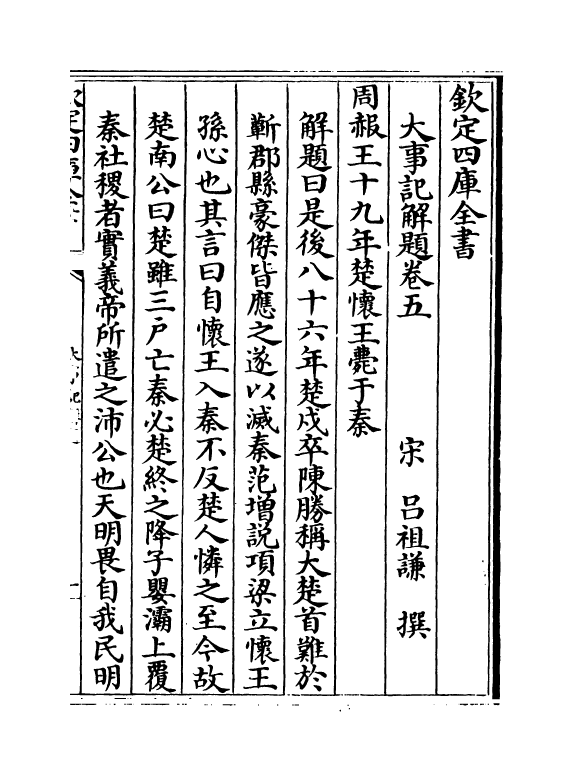 欽定四庫全書
大事記解題卷五 宋 呂祖謙 撰
周赧王十九年楚懷王薨于秦
解題曰是後八十六年楚戍卒陳勝稱大楚首難於
蘄郡縣豪傑皆應之遂以滅秦范增説項梁立懷王
孫心也其言曰自懷王入秦不反楚人憐之至今故
楚南公曰楚雖三户亡秦必楚終之降子嬰灞上覆
秦社稷者實義帝所遣之沛公也天明畏自我民明